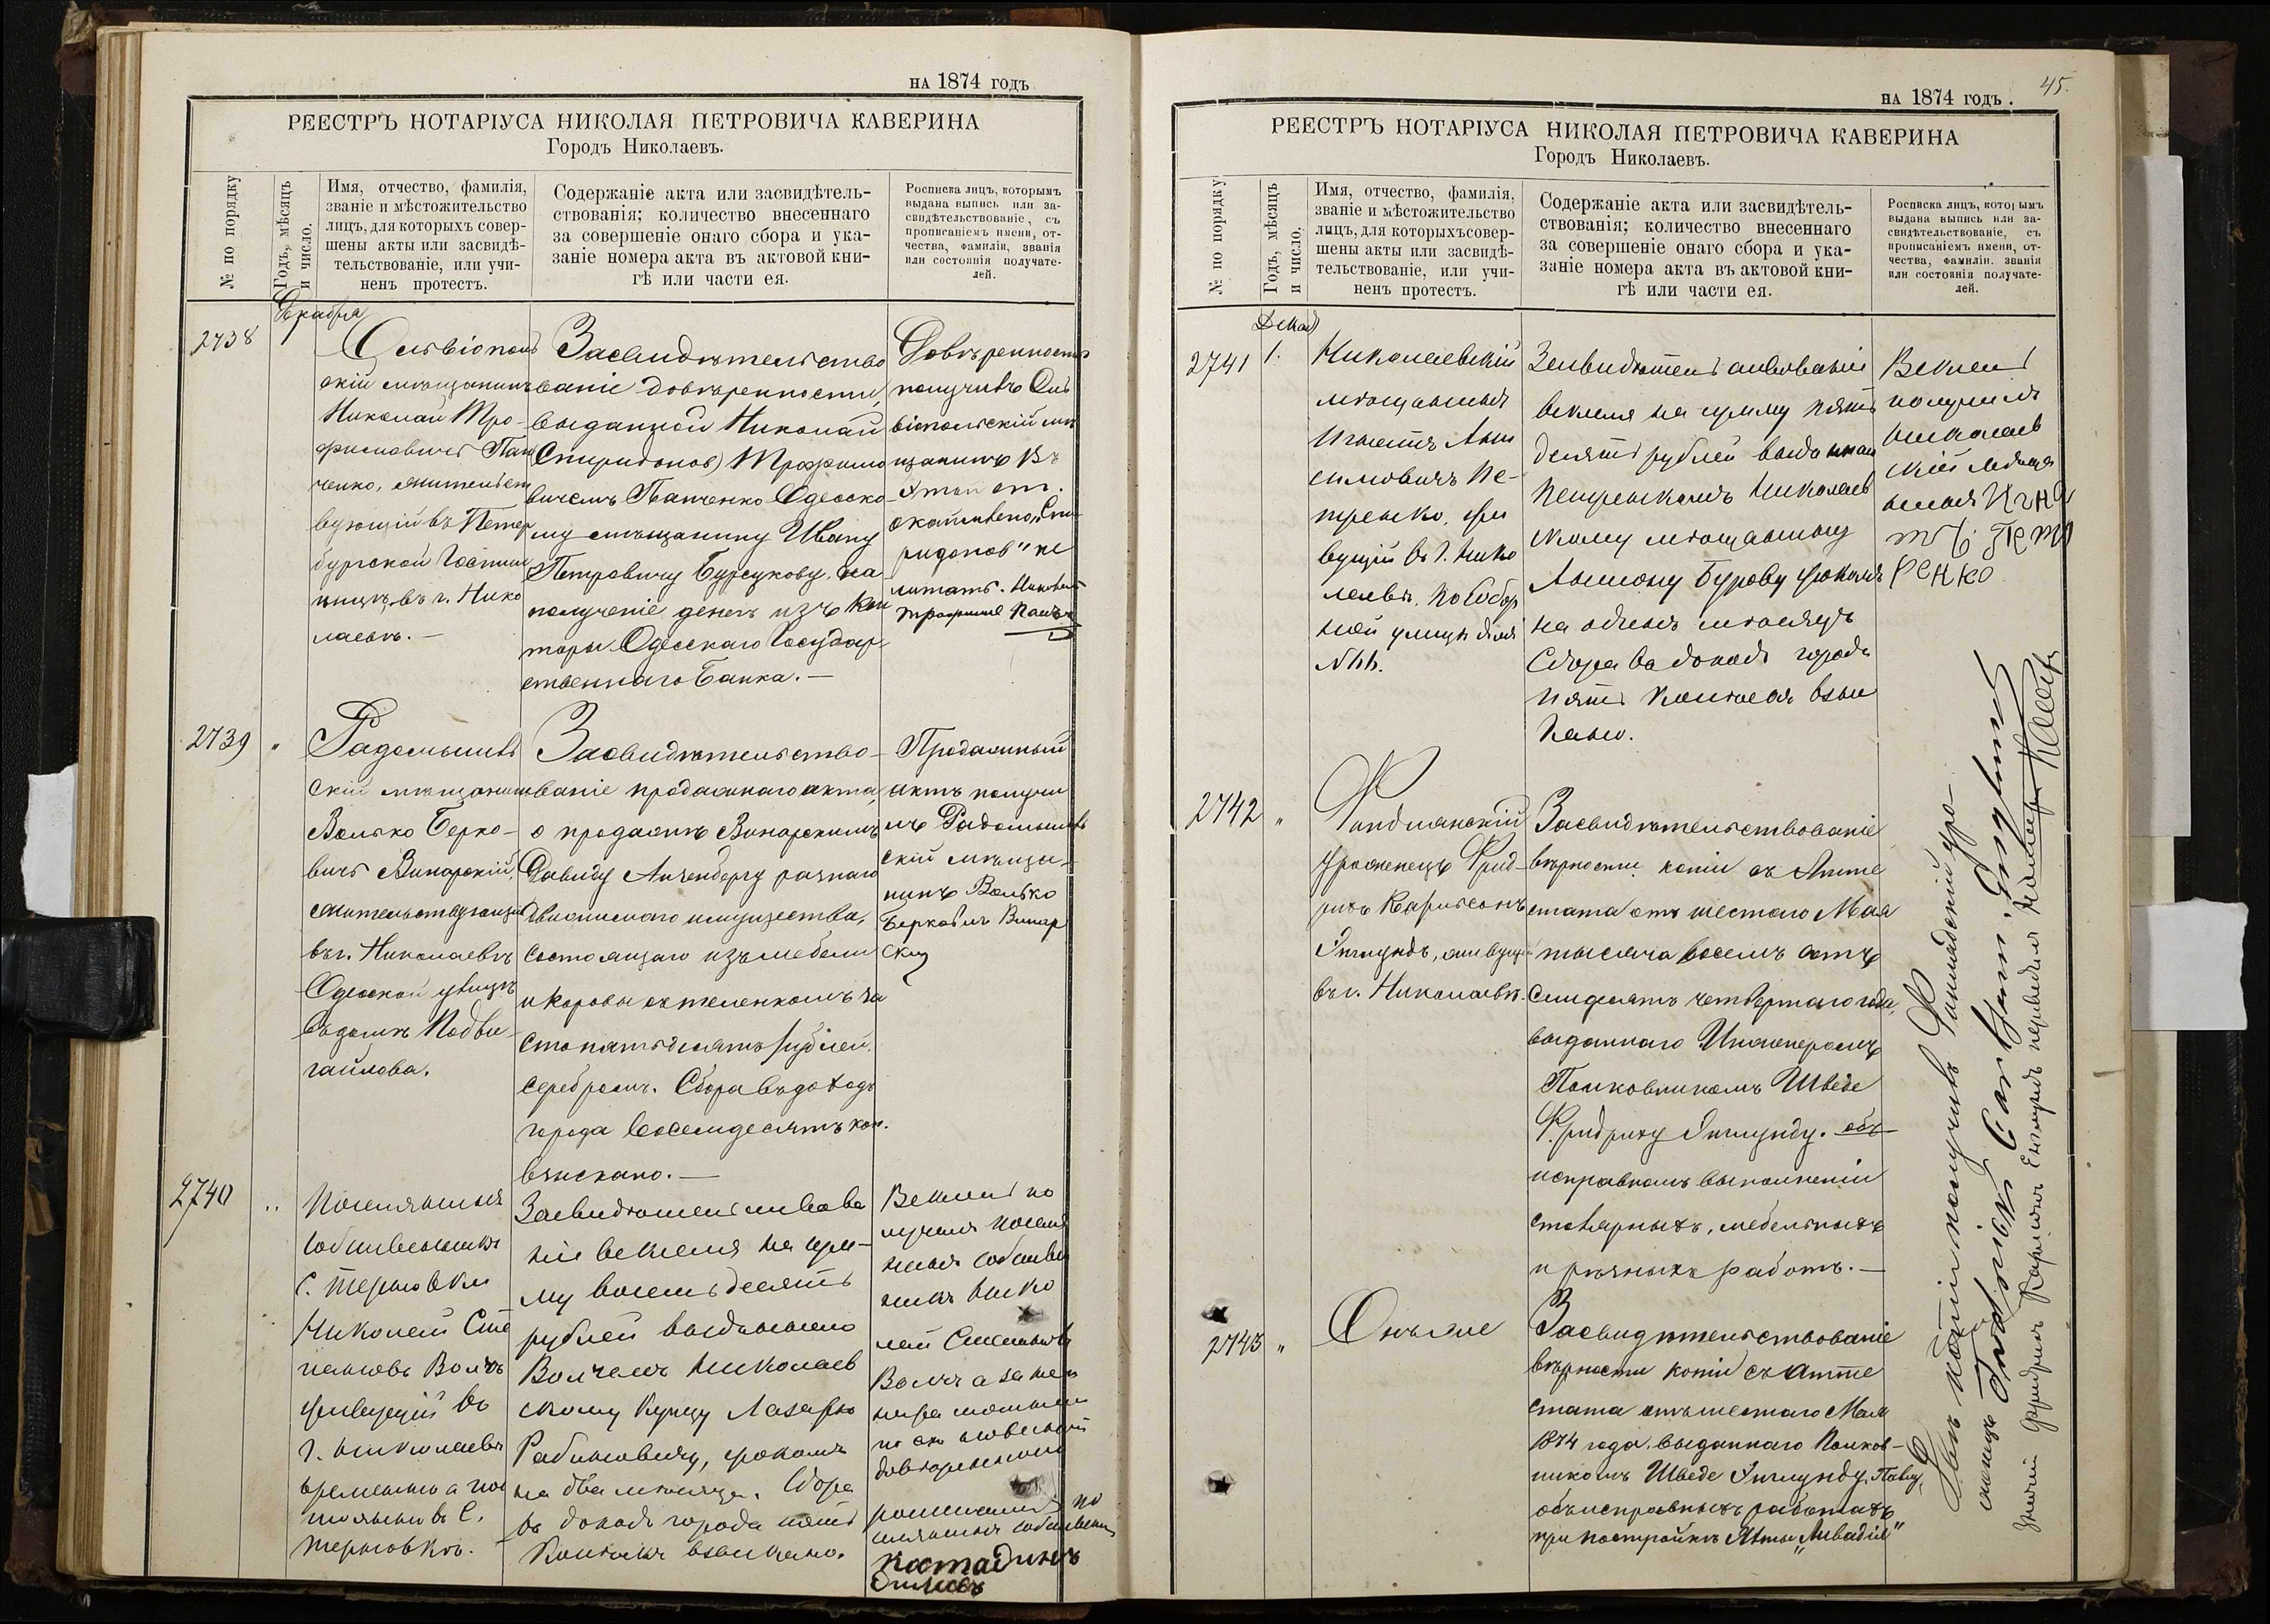 НА 1874 ГОДЪ
РЕЕСТРЪ НОТАРІУСА НИКОЛАЯ ПЕТРОВИЧА КАВЕРИНА
Городъ Николаевъ.
№ по порядку
Годъ, мѣсяцъ
и число.
Имя, отчество, фамилія,
званіе и мѣстожительство
лицъ, для которыхъ совер-
шены акты или засвидѣ-
тельствованіе, или учи-
ненъ протестъ.
Содержаніе акта или засвидѣтель-
ствованія; количество внесеннаго
за совершеніе онаго сбора и ука-
заніе номера акта въ актовой кни-
гѣ или части ея.
Росписка лицъ, которымъ
выдана выпись или за-
свидѣтельствованіе, съ
прописаніемъ имени, от-
чества, фамиліи, званія
или состоянія получате-
лей.
Декабря
2738
1
Ольвіополь
скій мѣщанинъ
Николай Тро-
фимовичъ Пан
ченко, жительст
вующій въ Петер
бургской Гостин
ницѣ, въ г. Нико
лаевѣ. —
Засвидѣтельство
ваніе довѣренности,
выданной Николай
(Спиридонов) Трофимо
вичемъ Панченко Одесско
му мѣщанину Ивану
Петровичу Бурцукову, на
полученіе денегъ изъ Кон
торы Одесскаго Государ
ственнаго Банка. —
Довѣренность
получилъ Оль
віопольскій мѣ
щанинъ Въ
этой ст.
окончено „Спи
ридонов" не
читать. Николай
2739
"
Радомысль
скій мѣщанин
Волько Берко-
вичъ Винарскій,
жительствующій
въ г. Николаевѣ
Одесской улицѣ
въ домѣ Подви-
гайлова.
Засвидѣтельство-
ваніе продажнаго акта,
о продажѣ Винарскимъ
Давиду Айзенбергу разнаго
движимаго имущества,
состоящаго изъ мебели
и коровы съ теленкомъ за
сто пятьдесятъ рублей
серебромъ. Сбора въ доходъ
города восемдесятъ коп.
взыскано. —
Продажный
актъ получи
лъ Радомысль
скій мѣща-
нинъ Волько
Берковичъ Винар
скій
2740
"
Поселянинъ
собственникъ
с. Терновки
Николай Сте
пановъ Волчъ
живущій въ
г. Николаевѣ
временно а пос
тоянно въ с.
Терновкѣ.
Засвидѣтельствова
ніе векселя на сум-
му восемьдесятъ
рублей выданнаго
Волчемъ Николаев
скому Купцу Лазарю
Рабиновичу, срокомъ
на два мѣсяца. Сбора
въ доходъ города пять
копѣекъ взыскано.
Вексель по
лучилъ посел
нинъ собствен
никъ Нико
лай Степановъ
Волчъ а за не
по его словесной
довѣренности
росписался по
селянинъ собственни
Костадинъ
НА 1874 ГОДЪ.
45.
РЕЕСТРЪ НОТАРІУСА НИКОЛАЯ ПЕТРОВИЧА КАВЕРИНА
Городъ Николаевъ.
№ по порядку
Годъ, мѣсяцъ
и число.
Имя, отчество, фамилія,
званіе и мѣстожительство
лицъ, для которыхъ совер-
шены акты или засвидѣ-
тельствованіе, или учи-
ненъ протестъ.
Содержаніе акта или засвидѣтель-
ствованія; количество внесеннаго
за совершеніе онаго сбора и ука-
заніе номера акта въ актовой кни-
гѣ или части ея.
Росписка лицъ, которымъ
выдана выпись или за-
свидѣтельствованіе, съ
прописаніемъ имени, от-
чества, фамиліи. званія
или состоянія получате-
лей.
Декаб
2741
1.
Николаевскій
мѣщанинъ
Игнатъ Ани
симовичъ Пе-
тренко, жи
вущій въ г. Нико
лаевѣ, по Собор
ной улицѣ домъ
Засвидѣтельствованіе
векселя на сумму пять
десятъ рублей выданнаго
Петренкомъ Николаев
скому мѣщанину
Бурову срокомъ
на одинъ мѣсяцъ
Сбора въ доходъ города
пять копѣекъ взы
скано.
Вексель
получилъ
Николаев
скій мѣща
нинъ Игна
тъ Пет
ренко
2742
"
Финдлянскій
уроженецъ Фрид-
рихъ Карлсонъ
Энглундъ, живущій
въ г. Николаевѣ.
Засвидѣтельствованіе
вѣрности копіи съ Атте
стата отъ шестаго Мая
тысяча восемь сотъ
семдесятъ четвертаго года,
выданнаго Инженеромъ
Полковникомъ Шведе
Фридриху Энглунду. объ
исправномъ выполненіи
столярныхъ, мебельныхъ
и рѣзныхъ работъ. —
2743
"
Онъ же
Засвидѣтельствованіе
вѣрности копіи съ Атте
стата отъ шестаго Мая
1874 года, выданнаго Полков-
никомъ Шведе Энглунду, Павлу,
объ исправныхъ работахъ
при постройкѣ Яхты „Ливадія"
Двѣ копіи получилъ Финляндскій уро-
женецъ